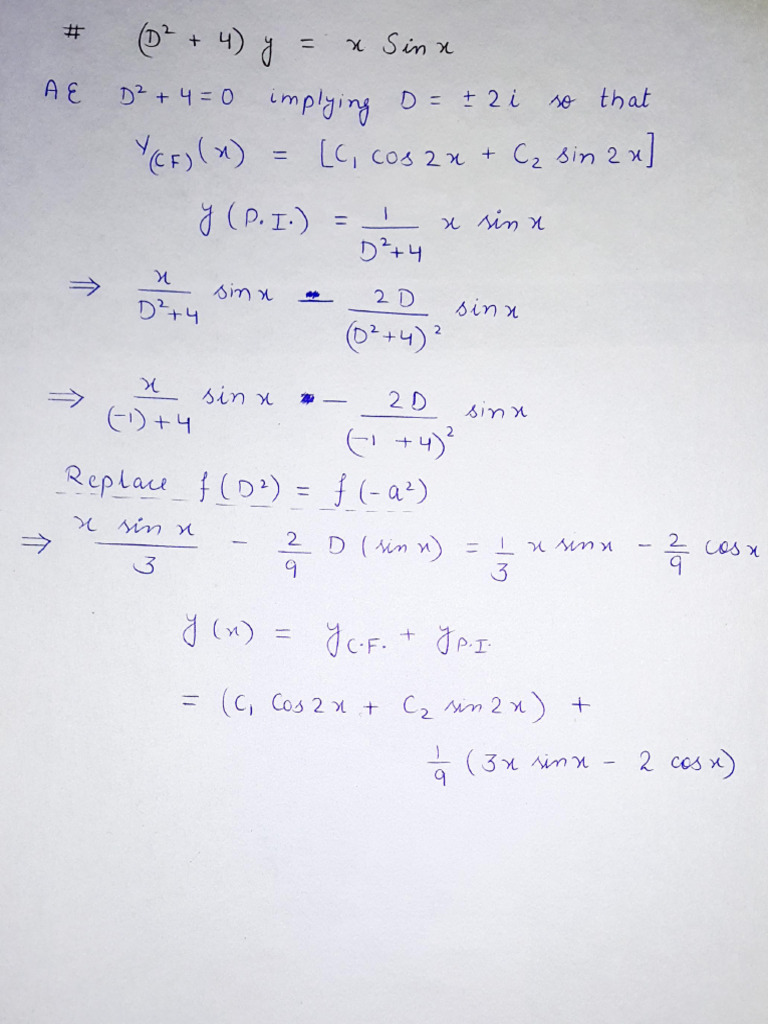 # (D² + 4) y = x Sin x
AE D² + 4 = 0 implying D = ± 2i so that
Y(CF)(x) = [C₁ cos 2x + C₂ sin 2x]
y (P.I.) = 1/(D²+4) x sin x
⇒ x/(D²+4) sin x - 2D/(D²+4)² sin x
⇒ x/((-1)+4) sin x - 2D/(-1+4)² sin x
Replace f(D²) = f(-a²)
⇒ x sin x/3 - 2/9 D (sin x) = 1/3 x sin x - 2/9 cos x
y(x) = y C.F. + y P.I.
= (C₁ Cos 2x + C₂ sin 2x) +
1/9 (3x sin x - 2 cos x)